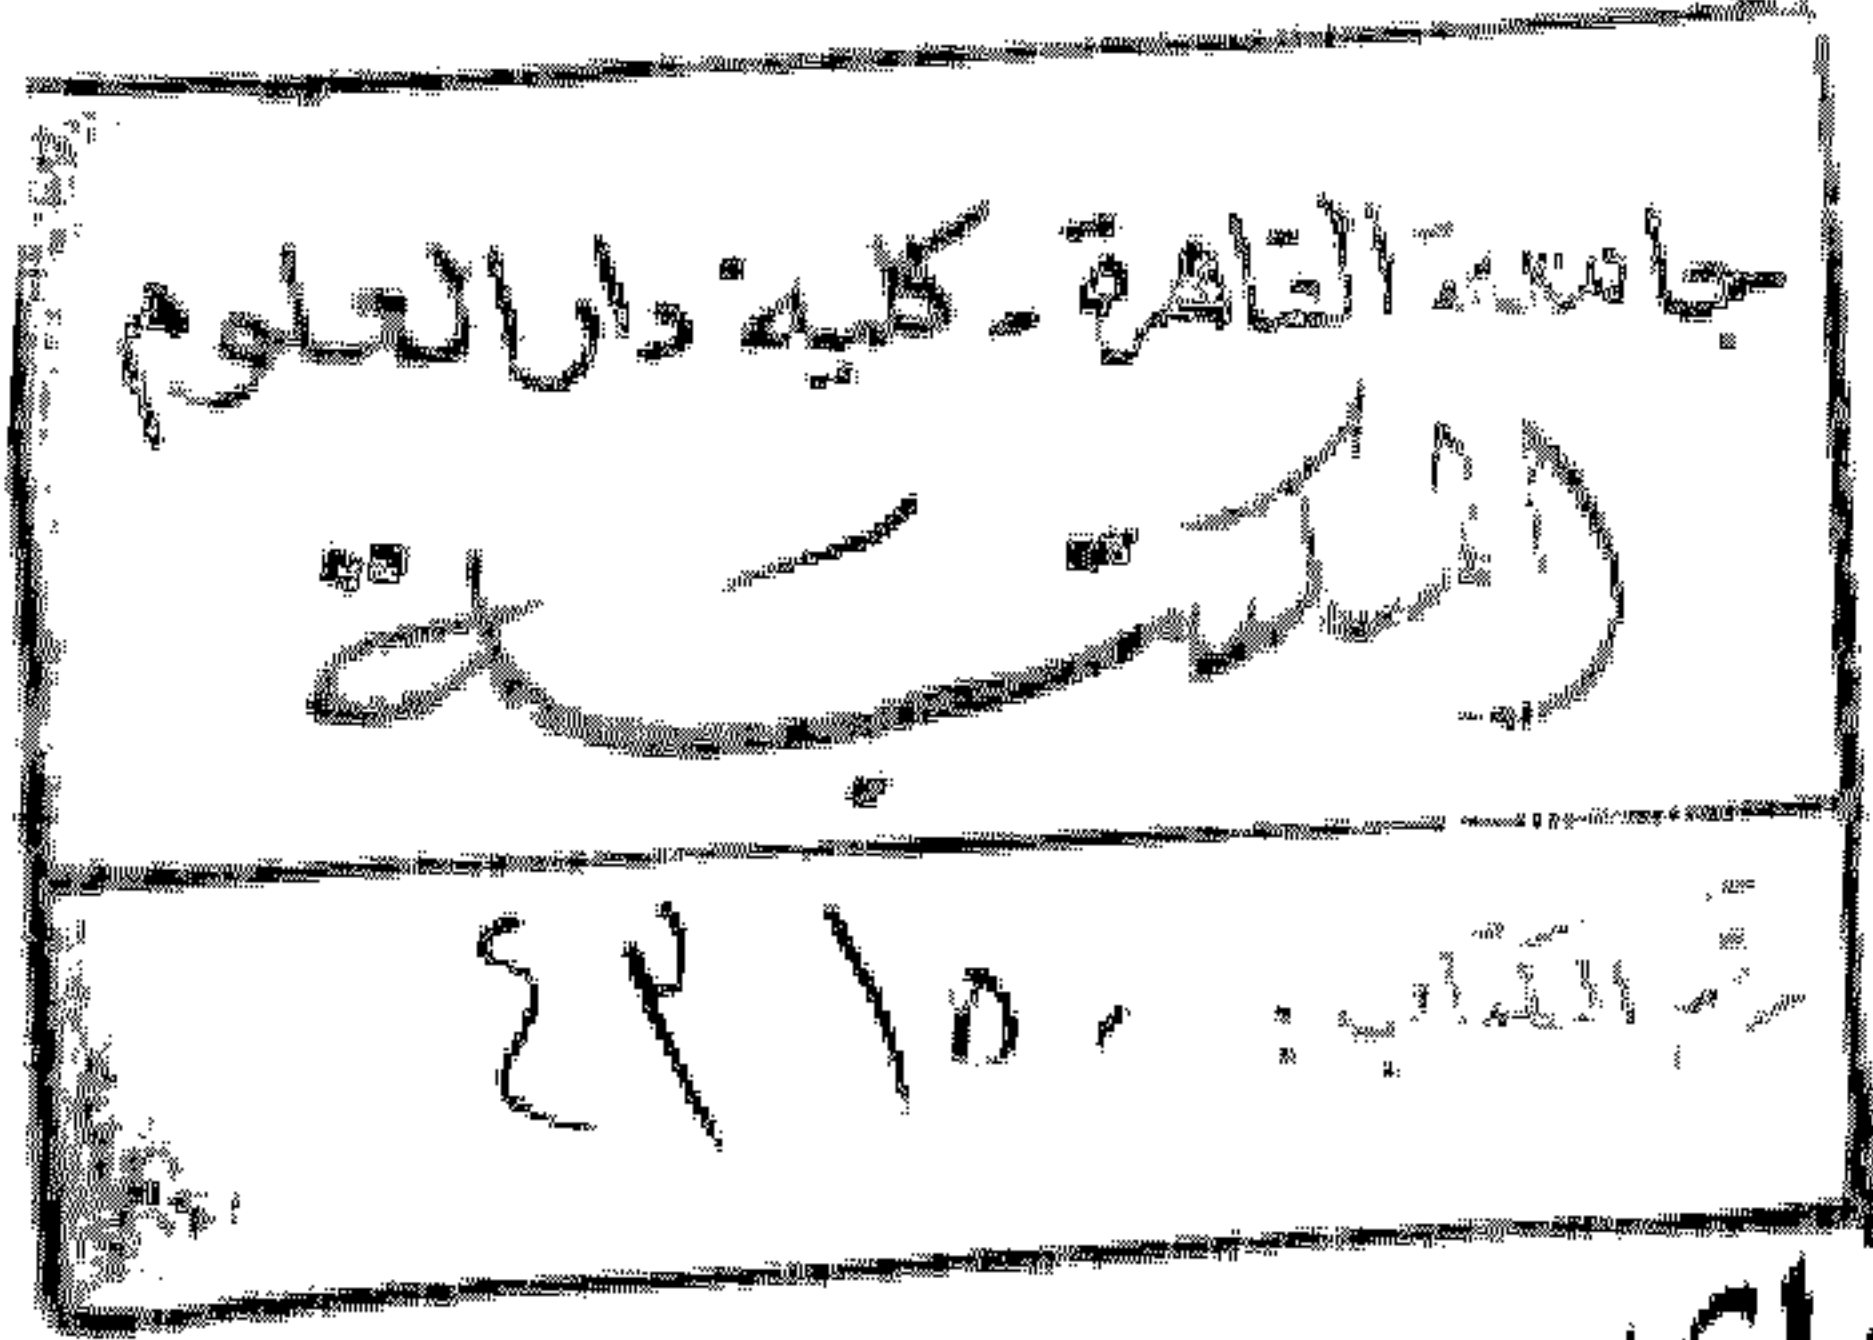 جامعة القاهرة - كلية دار العلوم
المكتبة
نمرة الكتاب : ٤٢١٥٠